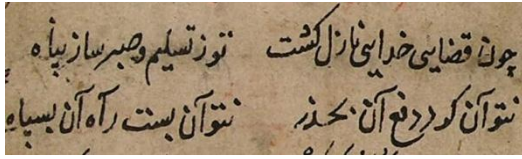 چون قضایی خدایی نازل کشت تو ز تسلیم و صبر ساز پناه
نتوان کرد دفع آن بحذر نتوان بست راه آن بسپاه